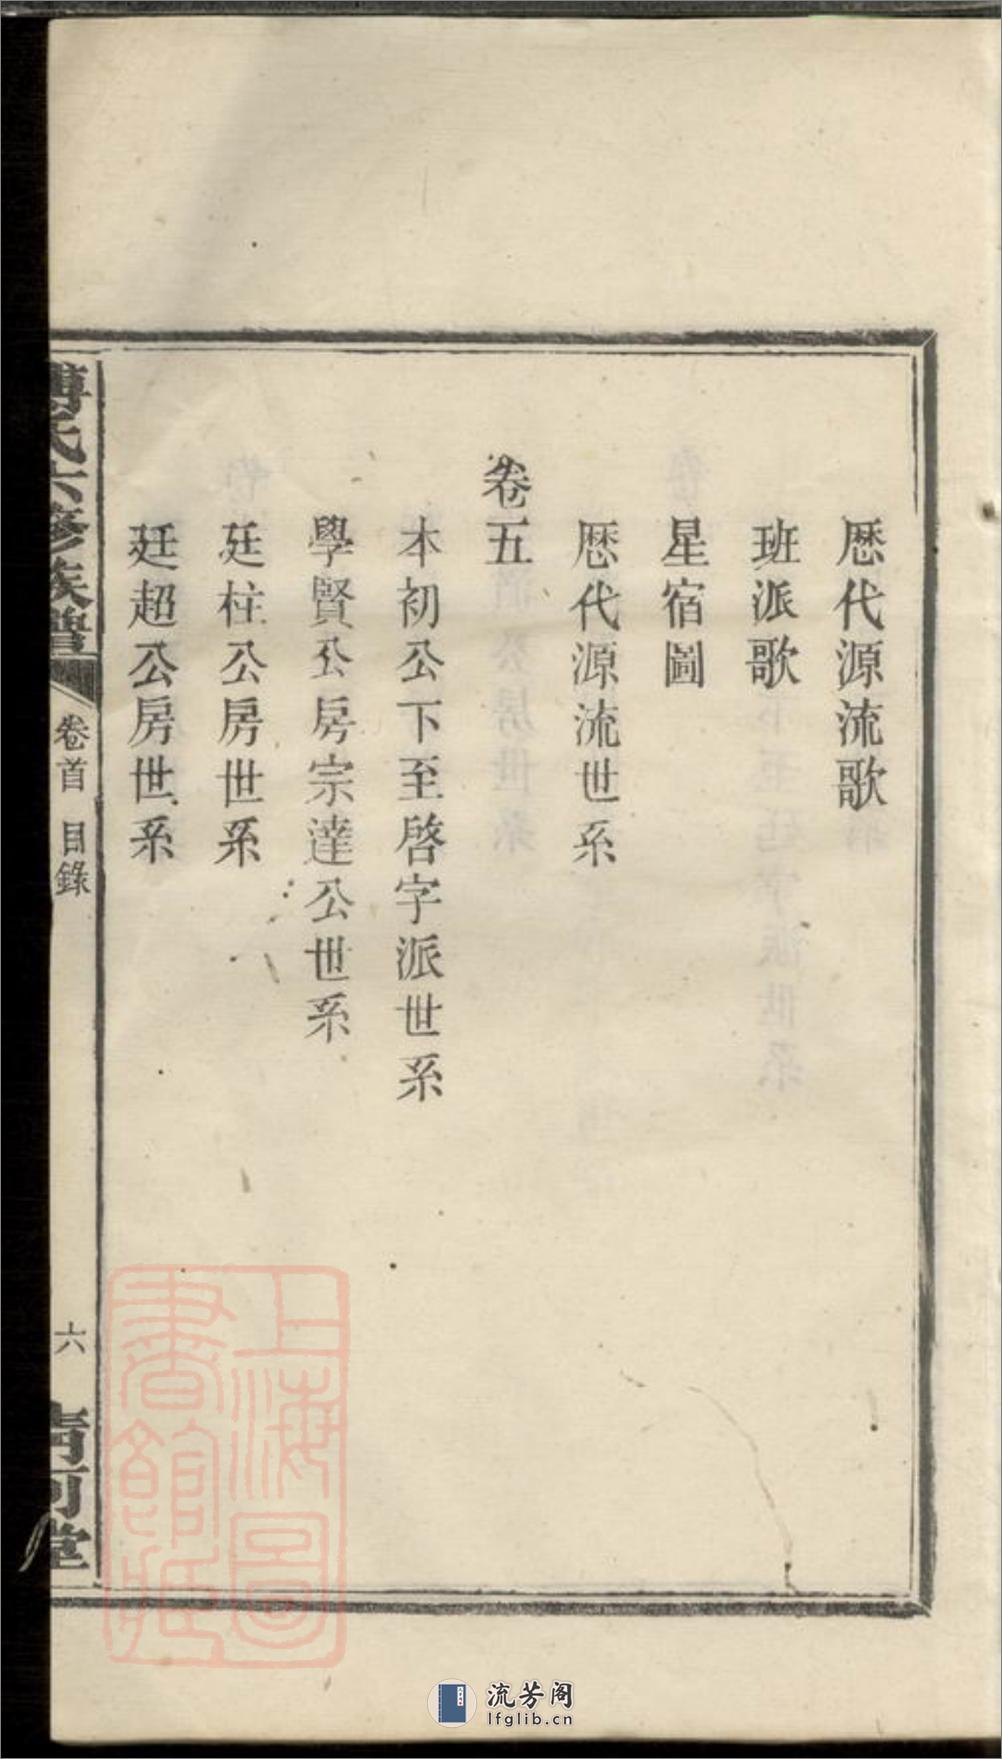 歷代源流歌
班派歌
星宿圖
歷代源流世系
卷五
本初公下至啓字派世系
學賢公房宗達公世系
廷柱公房世系
廷超公房世系
傅氏六修族譜
卷首 目錄
六
清河堂
上海圖書館藏
流芳阁
lfglib.cn